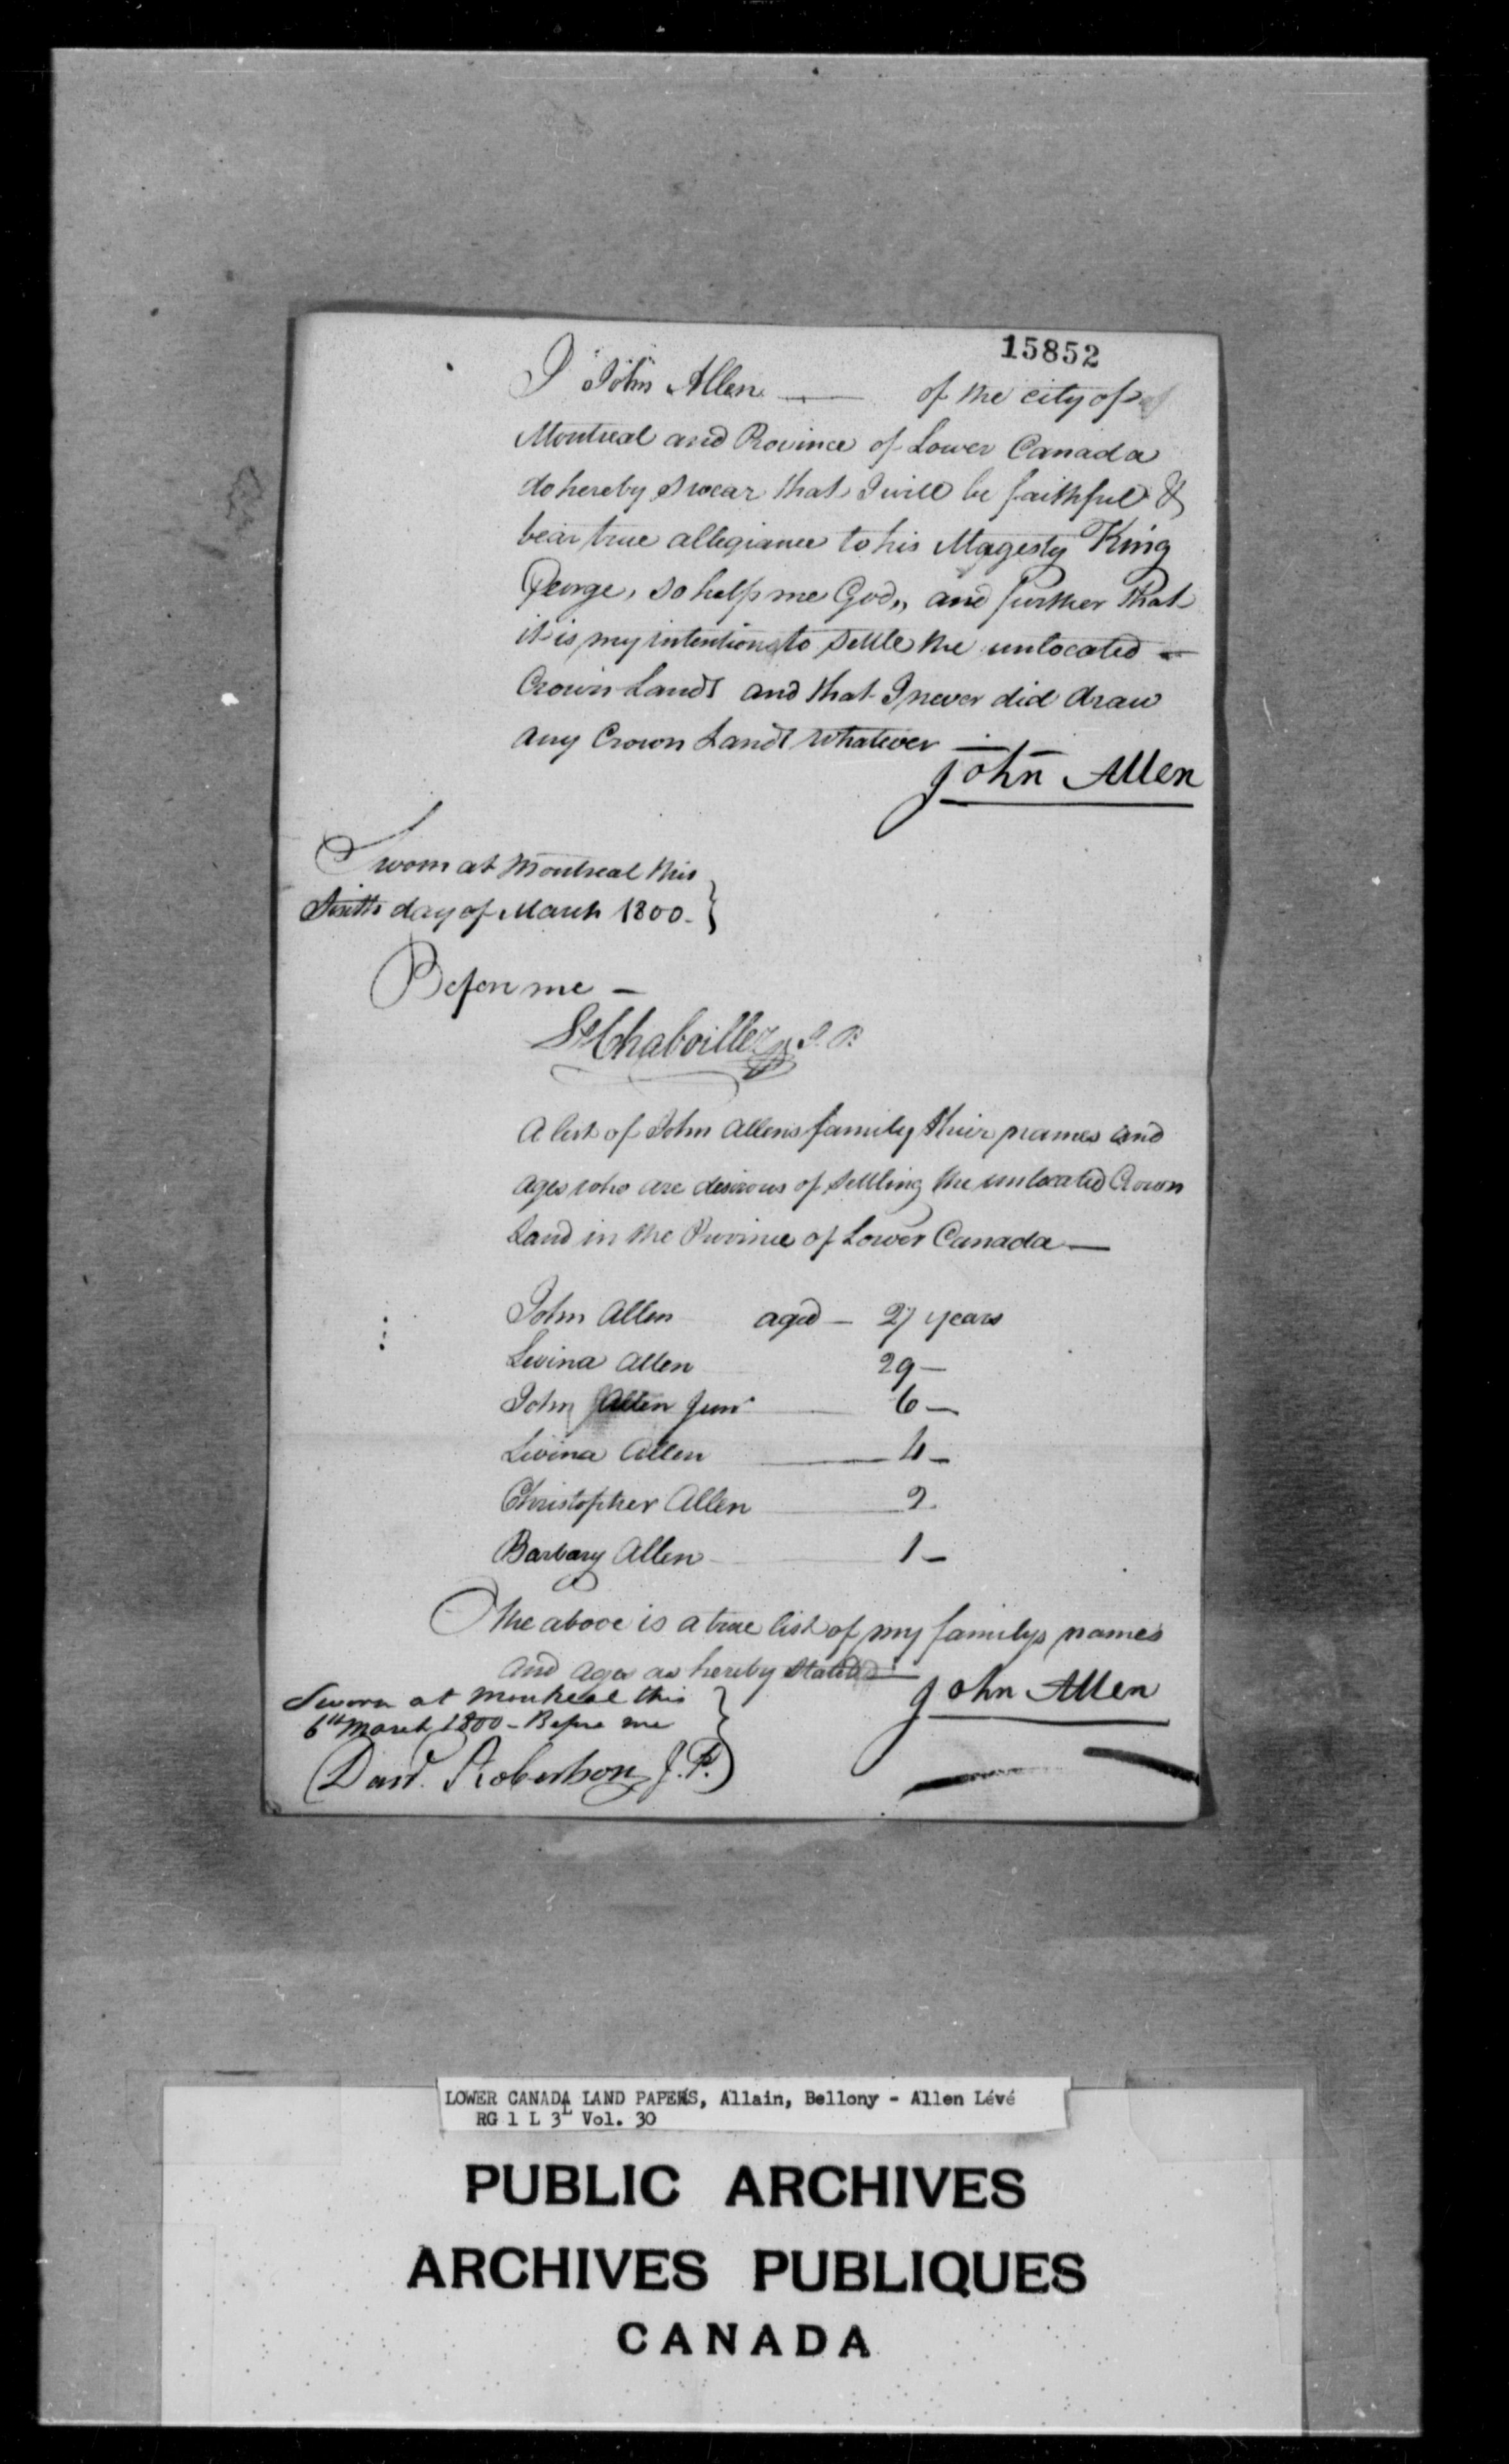 15852
I John Allen — of the city of
Montreal and Province of Lower Canada
do hereby swear that I will be faithful &
bear true allegiance to his Magesty King
George, so help me God,, and further that
it is my intention to settle the unlocated —
Crown Lands and that I never did draw
any Crown Lands whatever —
John Allen
Sworn at Montreal this
Sixth day of March 1800.
Before me —
Chaboillez J. P.
A list of John Allens family their names and
ages who are desirous of settling the unlocated Crown
Land in the Province of Lower Canada —
John Allen aged — 27 years
Levina Allen 29 —
John Allen Junr 6 —
Livina Allen 4 —
Christopher Allen 2.
Barbary Allen 1 —
The above is a true list of my familys names
and ages as hereby stated
John Allen
Sworn at Montreal this
6th March 1800 — Before me
(Davd. Robertson J. P.)
LOWER CANADA LAND PAPERS, Allain, Bellony - Allen Lévé
RG 1 L 3L Vol. 30
PUBLIC ARCHIVES
ARCHIVES PUBLIQUES
CANADA